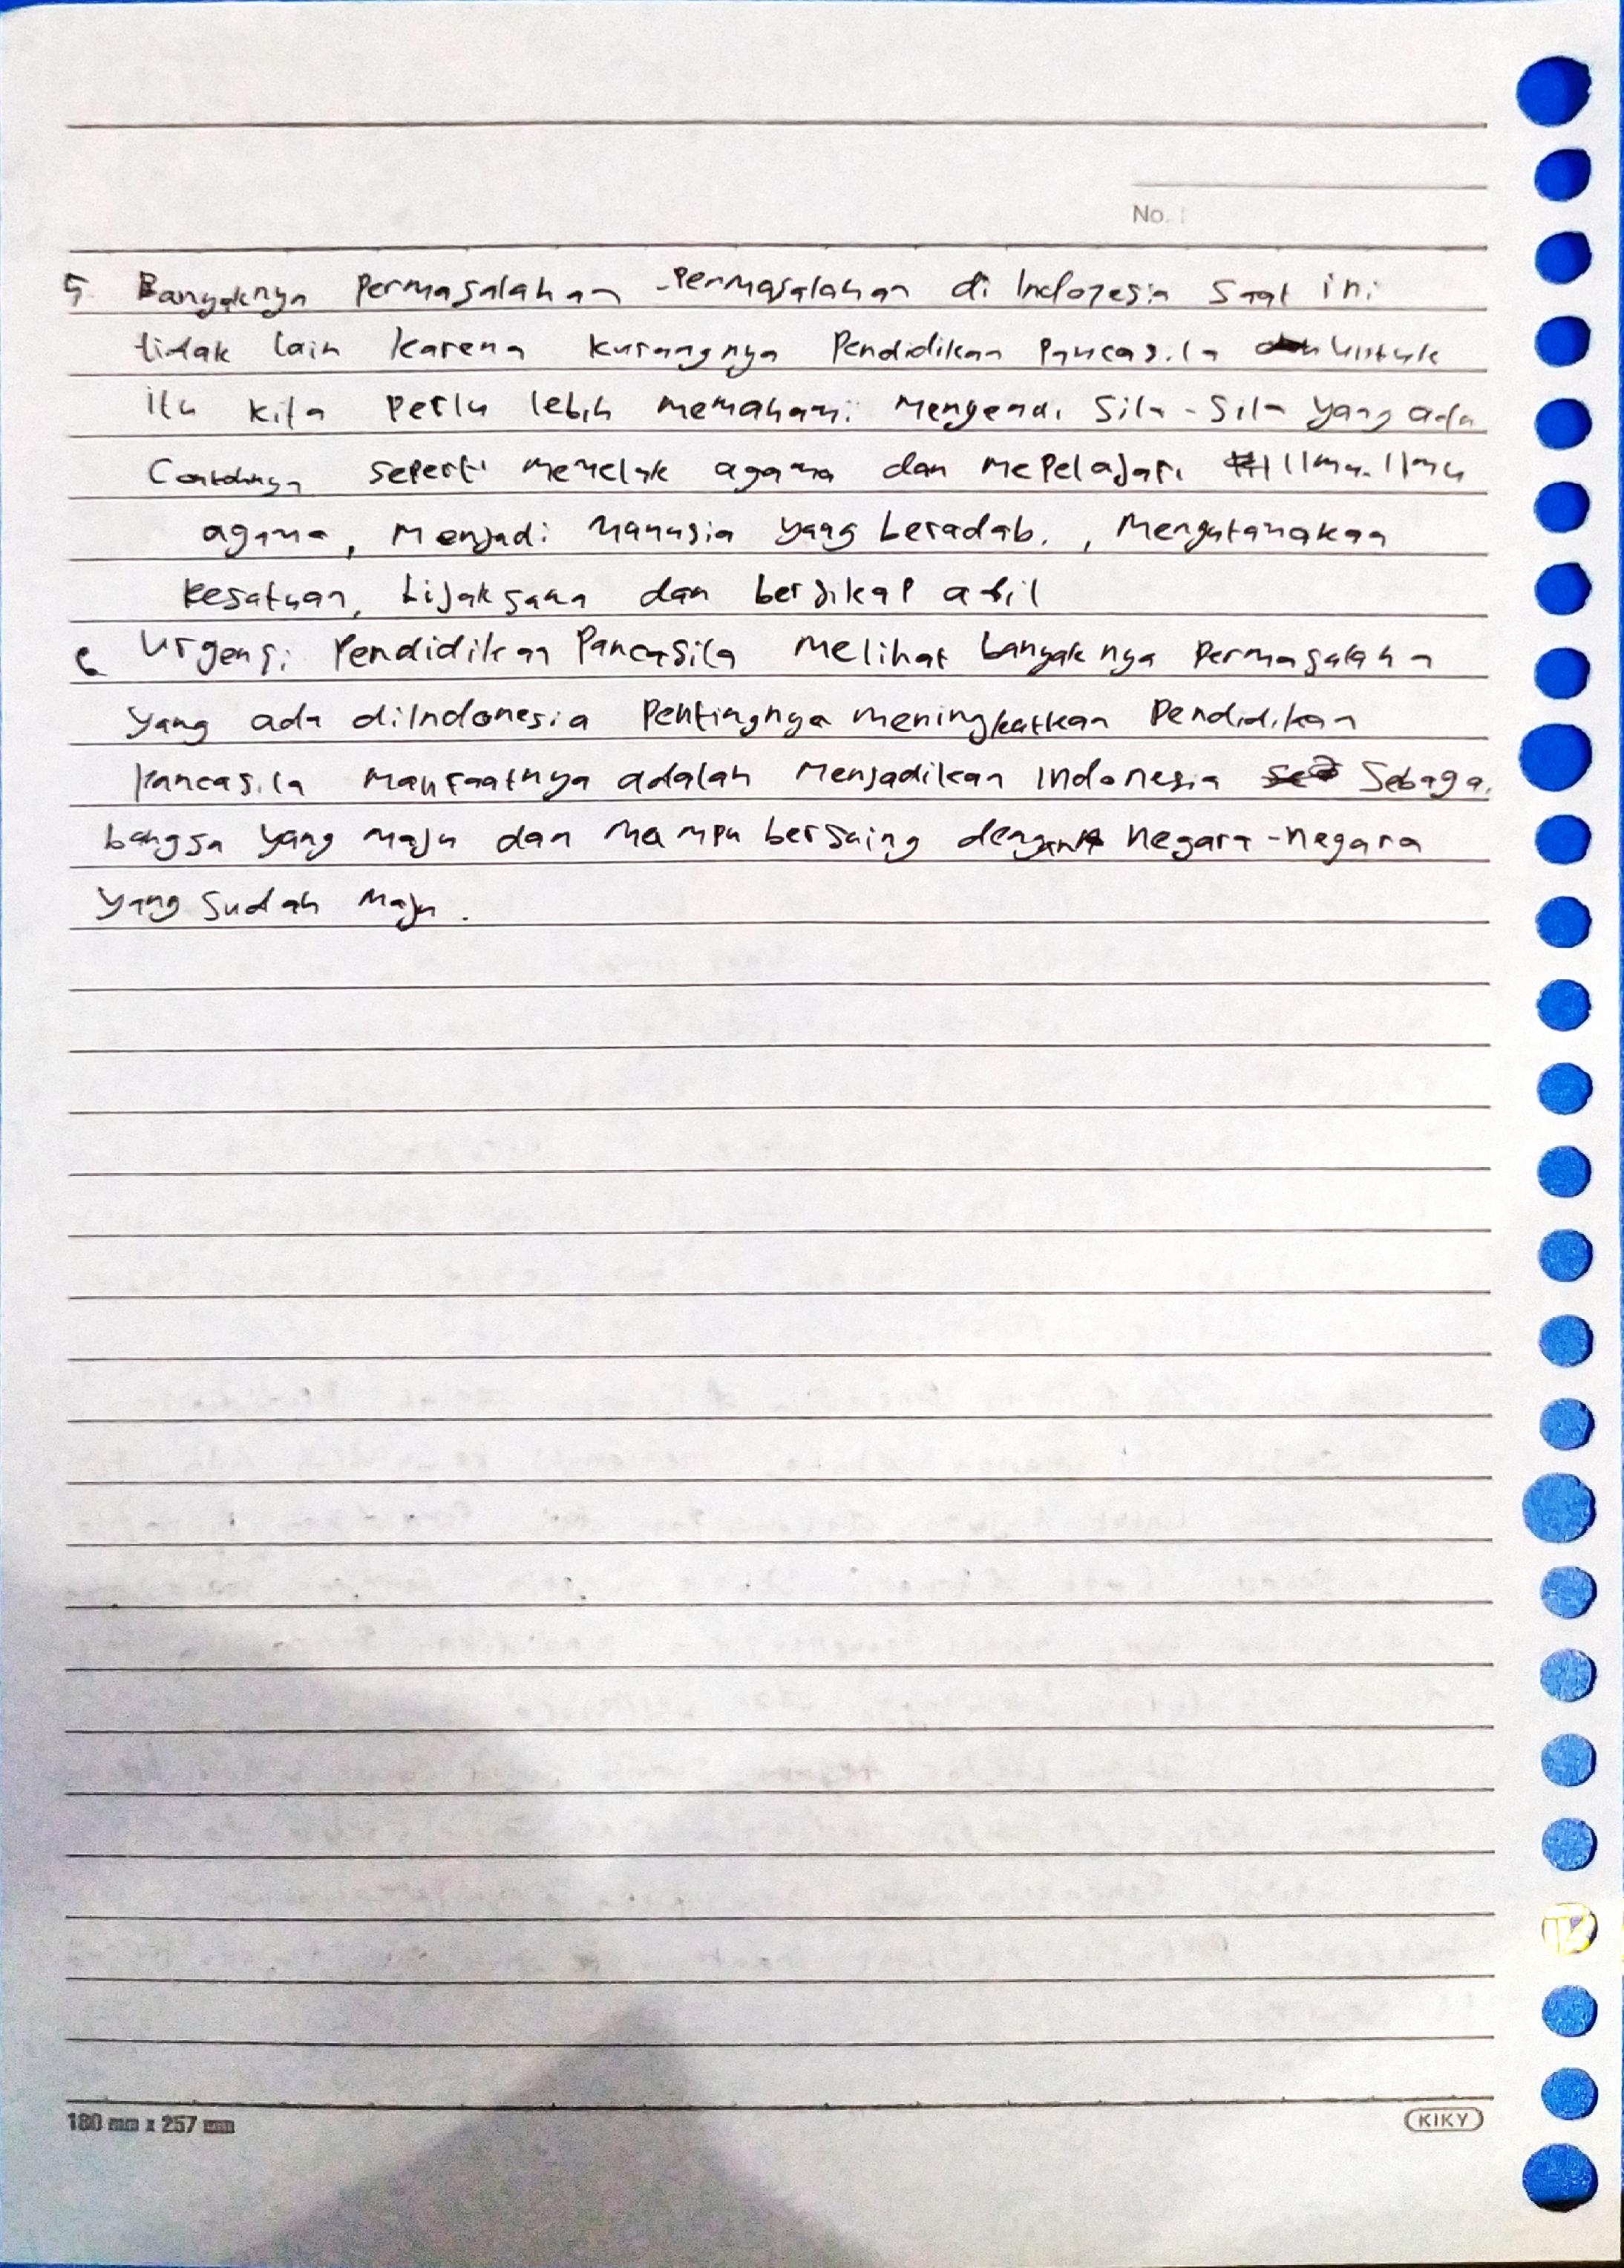 No. :
5 Banyaknya Permasalahan - Permasalahan di Indonesia saat ini
tidak lain karena kurangnya Pendidikan Pancasila untuk
itu kita perlu lebih memahami mengenai Sila - Sila yang ada
Contohnya seperti memeluk agama dan mepelajari Ilmu-Ilmu
agama, Menjadi Manusia yang beradab. , Mengutamakan
Kesatuan, bijaksana dan bersikap adil
6 Urgensi Pendidikan Pancasila Melihat banyaknya permasalahan
yang ada diIndonesia Pentingnya meningkatkan Pendidikan
Pancasila manfaatnya adalah menjadikan Indonesia sebagai
bangsa yang maju dan mampu bersaing dengan negara-negara
yang sudah maju.
180 mm x 257 mm
KIKY